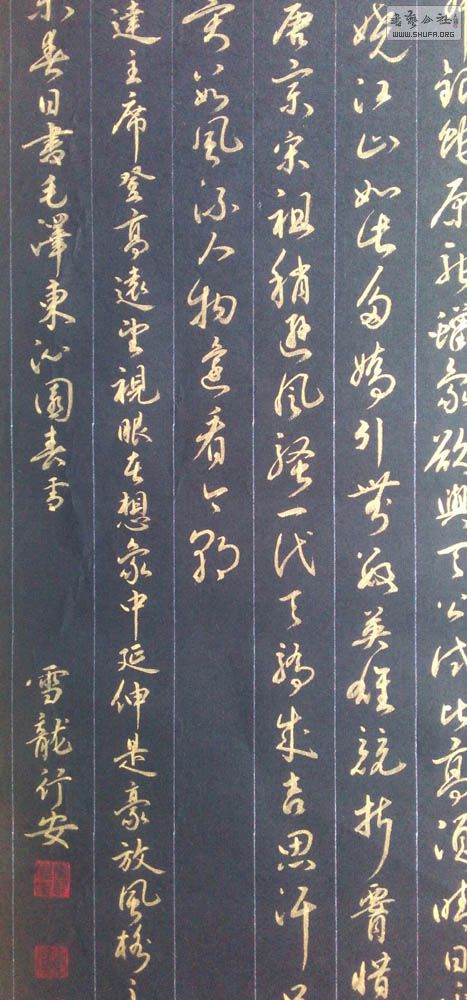 書藝公社
WWW.SHUFA.ORG
銀蛇原馳蠟象欲與天公試比高須晴日
嬈江山如此多嬌引無數英雄競折腰惜
唐宗宋祖稍遜風騷一代天驕成吉思汗
風流人物還看今朝
達主席登高遠望視眼在想象中延伸是豪放風格之
春日書毛澤東沁園春雪
雪龍行安